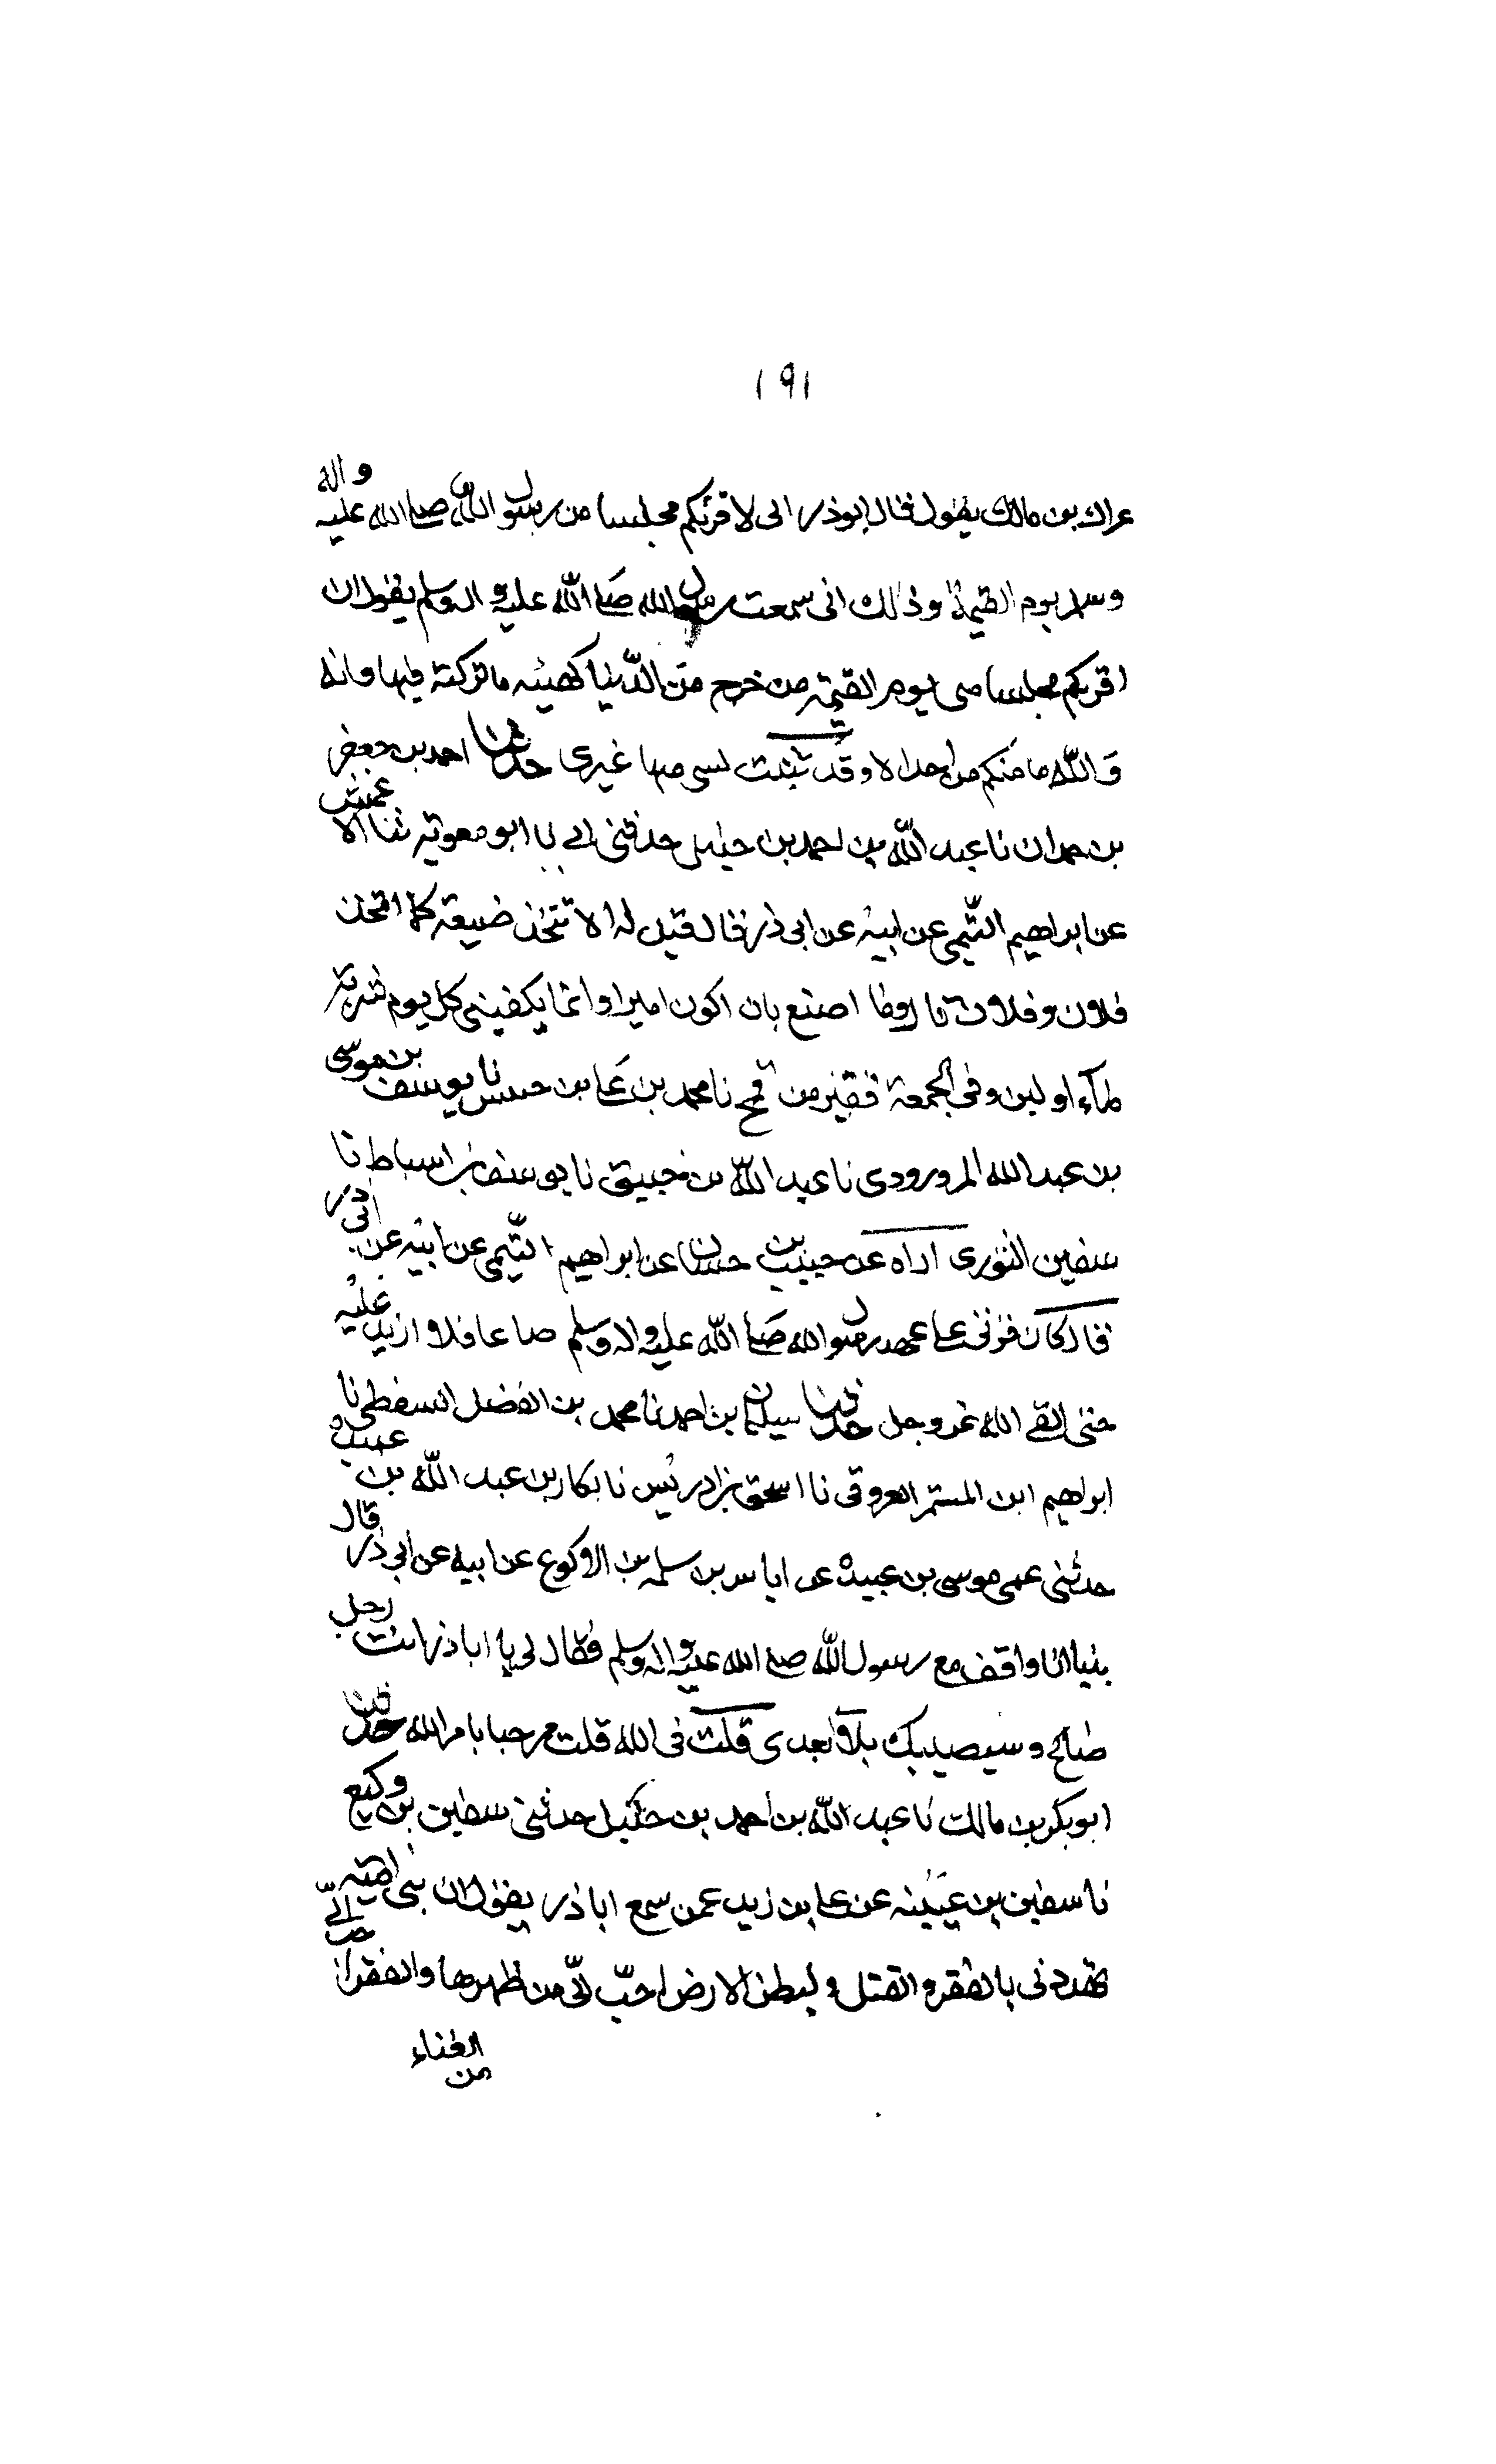 ١٩١
عراك بن مالك يقول قال ابوذر انى لاقربكم مجلسا من رسول الله صلى الله عليه واله
وسلم يوم القيمة وذلك انى سمعت رسول الله صلى الله عليه واله وسلم يقول ان
اقربكم مجلسا منى يوم القيمة من خرج من الدنيا كهيئه ما تركته فيها وانه
والله ما منكم من احد الا وقد تشبث بشىء منها غيرى حدثنا احمد بن جعفر
بن حمدان نا عبد الله بن احمد بن حنبل حدثنى ابى نا ابو معوية ثنا الاعمش
عن ابراهيم التيمى عن ابيه عن ابى ذر قال قيل له الا تتخذ ضيعة كما اتخذ
فلان وفلان قال وما اصنع بان اكون اميرا وانما يكفينى كل يوم شربة
ماء او لبن وفى الجمعة قفيز من قمح نا محمد بن على بن حبيش نا يوسف بن موسى
بن عبد الله المرورودى نا عبد الله بن خبيق نا يوسف بن اسباط نا
سفين الثورى اراه عن حبيب بن حسان عن ابراهيم التيمى عن ابيه عن ابى ذر
قال كان قوتى على عهد رسول الله صلى الله عليه واله وسلم صاعا فلا ازيد عليه
حتى القى الله عز وجل حدثنا سليمان بن احمد نا محمد بن الفضل السقطى نا
ابراهيم ابن المستمر العروقى نا اسحق بن ادريس نا بكار بن عبد الله بن عبيدة
حدثنى عمى موسى بن عبيدة عن اياس بن سلمه بن الاكوع عن ابيه عن ابى ذر قال
بينا انا واقف مع رسول الله صلى الله عليه واله وسلم فقال لى يا اباذر انت رجل
صالح وسيصيبك بلاء بعدى قلت فى الله قلت مرحبا بامر الله حدثنا
ابو بكر بن مالك نا عبد الله بن احمد بن حنبل حدثنى سفين بن وكيع
نا سفين بن عيينه عن على بن زيد عمن سمع اباذر يقول ان بنى امية
تهددنى بالفقر والقتل ولبطن الارض احبّ الىّ من ظهرها والفقر احب الىّ
من الغناء